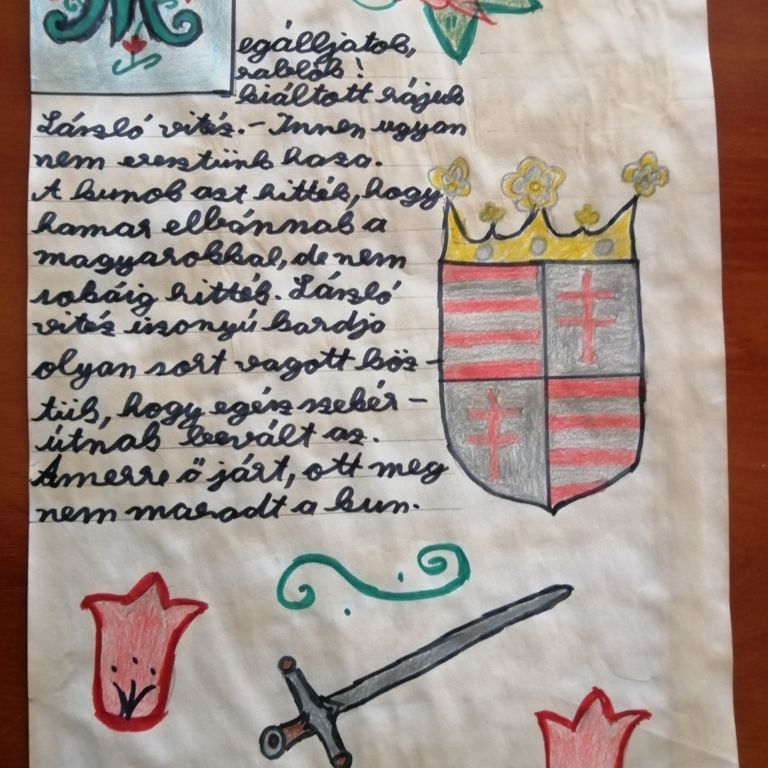 M
egálljatok,
rablók!
kiáltott rájuk
László vitéz. - Innen ugyan
nem eresztünk haza.
A kunok azt hitték, hogy
hamar elbánnak a
magyarokkal, de nem
sokáig hitték. László
vitéz iszonyú bardja
olyan sort vagott köz-
tük, hogy egész szekér-
útnak bevált az.
Amerre ő járt, ott meg
nem maradt a kun.